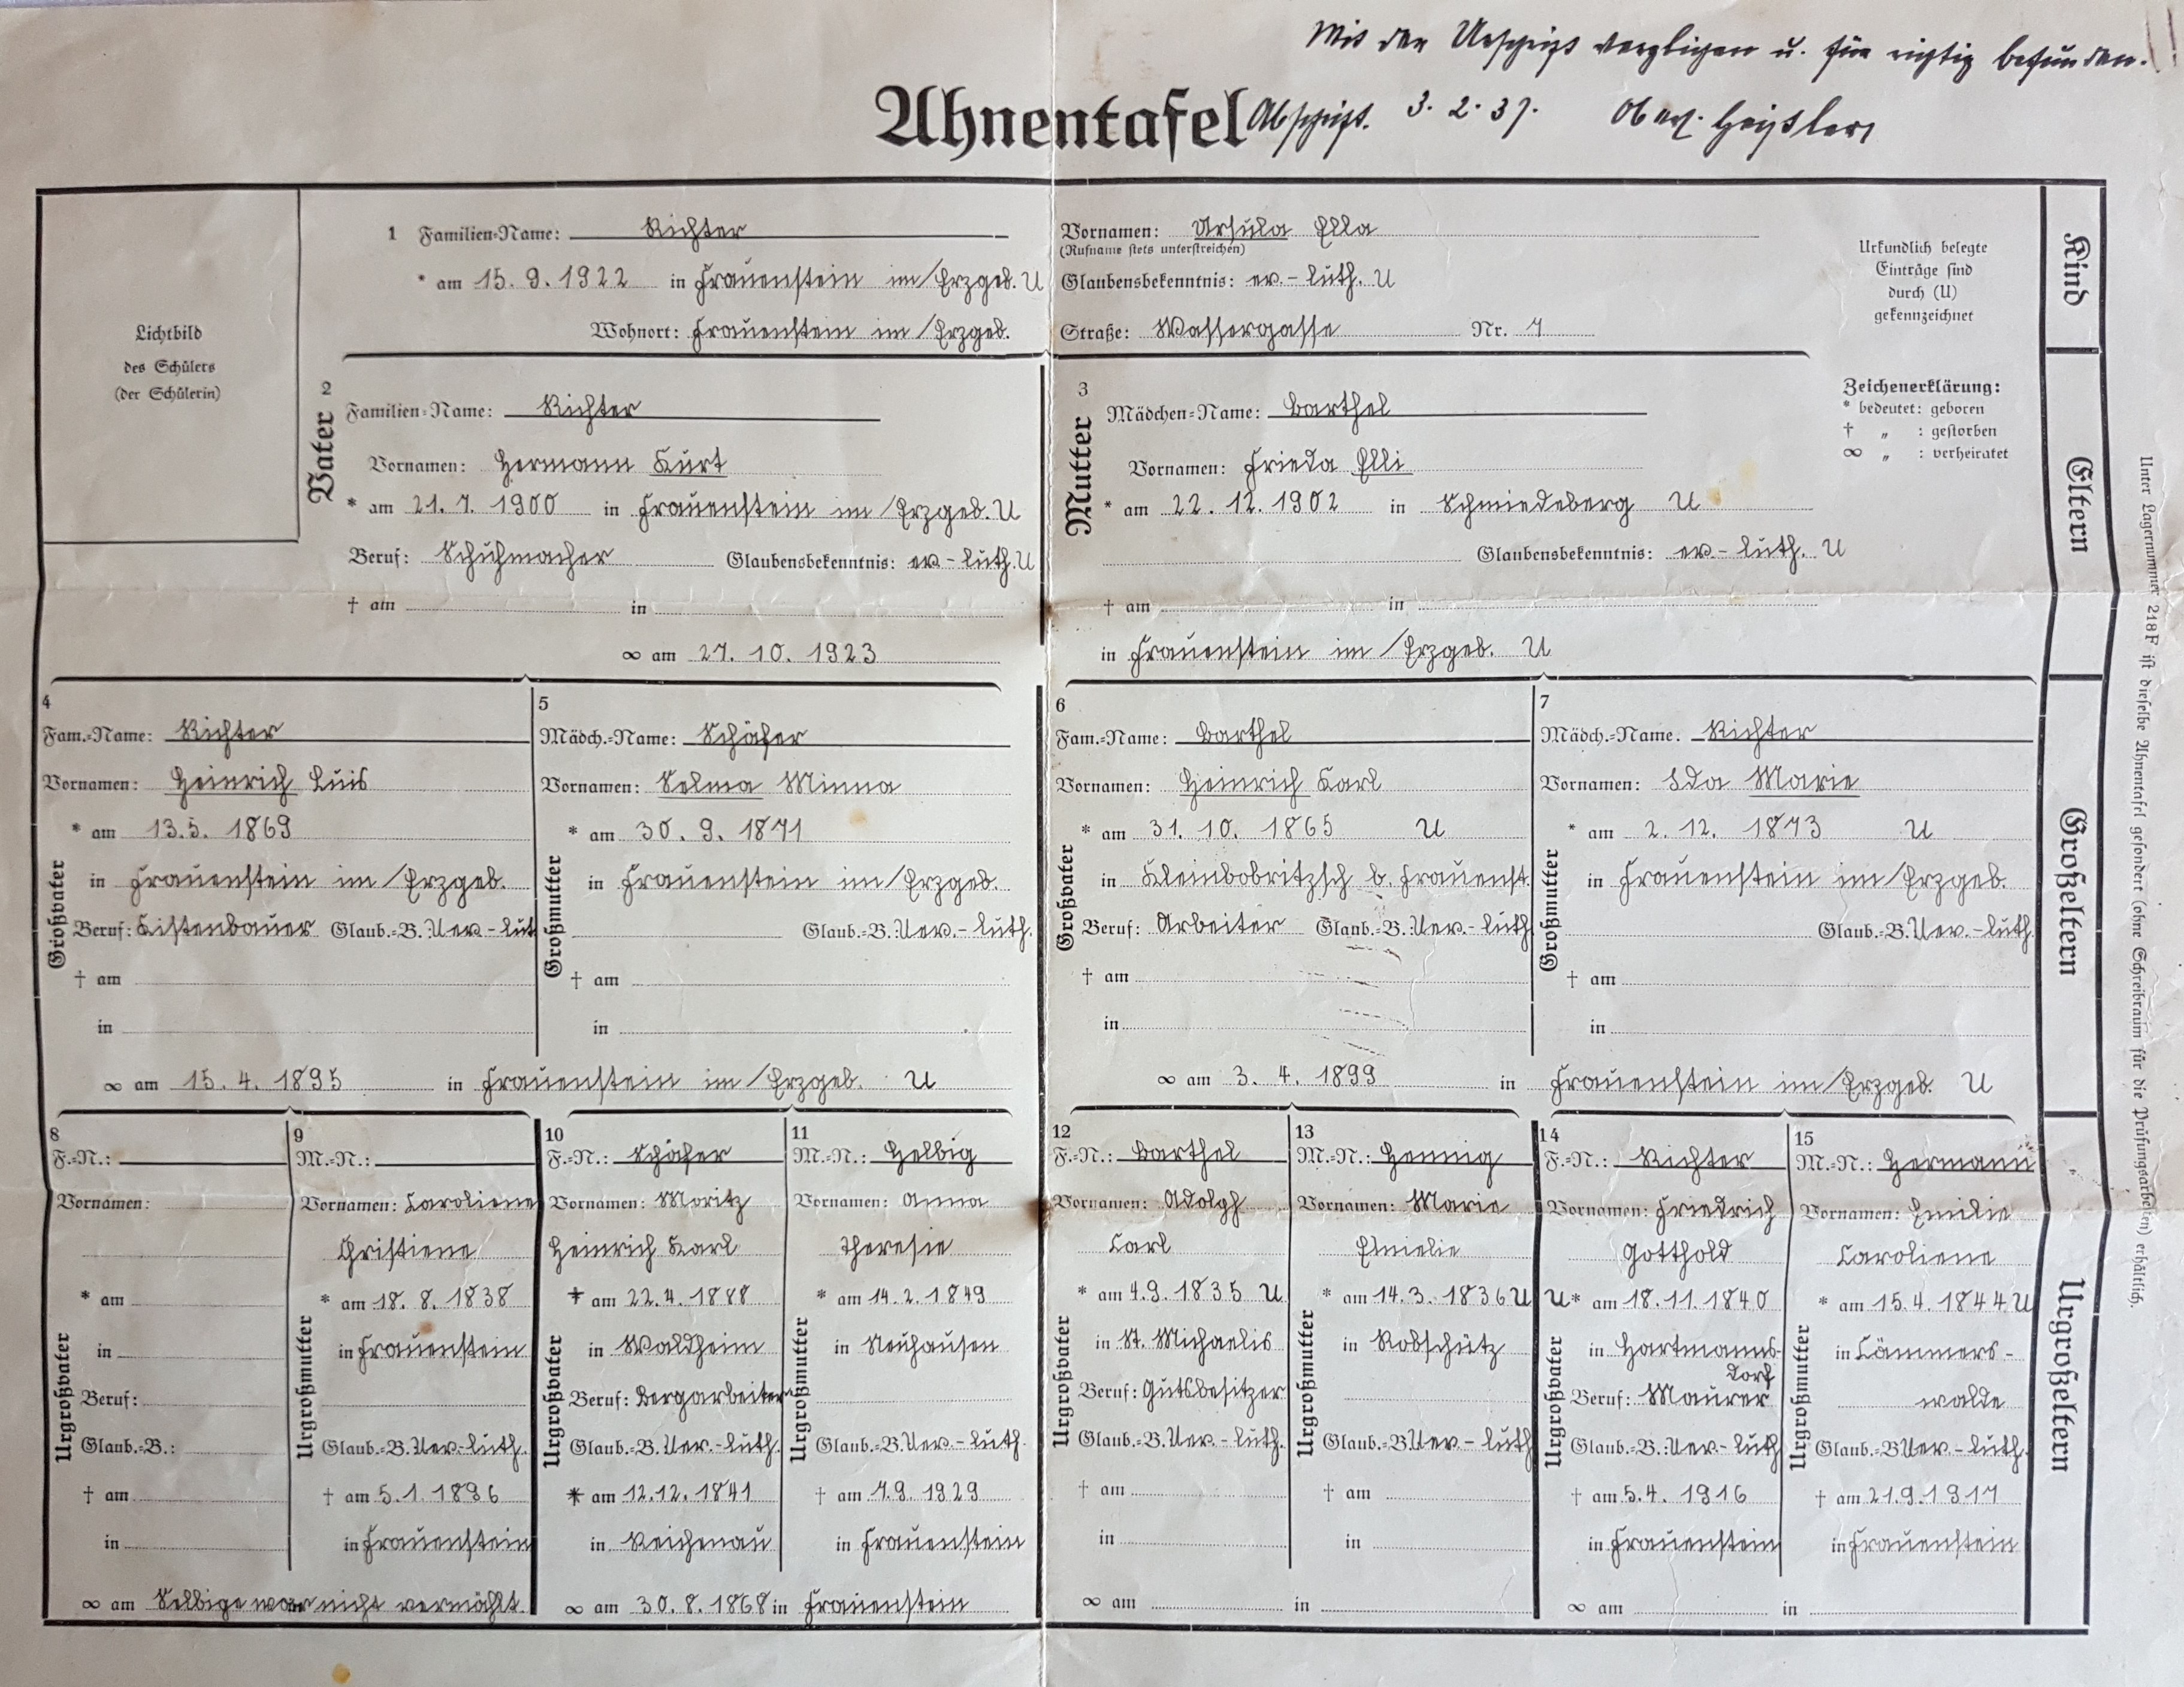 Mit der Urschrift verglichen u. für richtig befunden.
Ahnentafel Abschrift. 3. 2. 37.
Lichtbild
des Schülers
(der Schülerin)
1 Familien-Name: Richter
* am 15. 9. 1922 in Frauenstein im/Erzgeb. U
Wohnort: Frauenstein im/Erzgeb.
Vornamen: Ursula Ella
(Rufname stets unterstreichen)
Glaubensbekenntnis: ev.-luth. U
Straße: Wassergasse Nr. 7
Urkundlich belegte
Einträge sind
durch (U)
gekennzeichnet
Kind
2
Vater
Familien-Name: Richter
Vornamen: Hermann Kurt
* am 21. 7. 1900 in Frauenstein im/Erzgeb. U
Beruf: Schuhmacher Glaubensbekenntnis: ev-luth. U
† am in
3
Mutter
Mädchen-Name: Barthel
Vornamen: Frieda Elli
* am 22. 12. 1902 in Schmiedeberg U
Glaubensbekenntnis: ev-luth. U
† am in
∞ am 27. 10. 1923 in Frauenstein im/Erzgeb. U
Zeichenerklärung:
* bedeutet: geboren
† „ : gestorben
∞ „ : verheiratet
Eltern
4
Großvater
Fam.-Name: Richter
Vornamen: Heinrich Luis
* am 13. 5. 1869
in Frauenstein im/Erzgeb.
Beruf: Kistenbauer Glaub.-B.: U ev-lut
† am
in
5
Großmutter
Mädch.-Name: Schäfer
Vornamen: Selma Minna
* am 30. 9. 1871
in Frauenstein im/Erzgeb.
Glaub.-B. U ev.-luth.
† am
in
∞ am 15. 4. 1895 in Frauenstein im/Erzgeb. U
6
Großvater
Fam.-Name: Barthel
Vornamen: Heinrich Karl
* am 31. 10. 1865 U
in Kleinbobritzsch b. Frauenst.
Beruf: Arbeiter Glaub.-B. U ev.-luth
† am
in
7
Großmutter
Mädch.-Name. Richter
Vornamen: Ida Marie
* am 2. 12. 1873 U
in Frauenstein im/Erzgeb.
Glaub.-B. U ev.-luth.
† am
in
∞ am 3. 4. 1899 in Frauenstein im/Erzgeb. U
Großeltern
8
Urgroßvater
F.-N.:
Vornamen:
* am
in
Beruf:
Glaub.-B.:
† am
in
9
Urgroßmutter
M.-N.:
Vornamen: Caroliene
Christiene
* am 18. 8. 1838
in Frauenstein
Glaub.-B. U ev-luth.
† am 5. 1. 1896
in Frauenstein
∞ am Selbige war nicht vermählt.
10
Urgroßvater
F.-N.: Schäfer
Vornamen: Moritz
Heinrich Karl
† am 22. 4. 1888
in Waldheim
Beruf: Bergarbeiter
Glaub.-B. U ev.-luth.
* am 12. 12. 1841
in Reichenau
11
Urgroßmutter
M.-N.: Helbig
Vornamen: Anna
Theresie
* am 14. 2. 1849
in Neuhausen
Glaub.-B. U ev-luth.
† am 7. 9. 1929
in Frauenstein
∞ am 30. 8. 1868 in Frauenstein
12
Urgroßvater
F.-N.: Barthel
Vornamen: Adolph
Carl
* am 4. 9. 1835 U
in St. Michaelis
Beruf: Gutsbesitzer
Glaub.-B. U ev.-luth.
† am
in
13
Urgroßmutter
M.-N.: Hennig
Vornamen: Marie
Emielie
* am 14. 3. 1836 U
in Robschütz
Glaub.-B U ev-luth
† am
in
∞ am in
14
Urgroßvater
F.-N.: Richter
Vornamen: Friedrich
Gotthold
U * am 18. 11. 1840
in Hartmanns-
dorf
Beruf: Maurer
Glaub.-B.: U ev-luth
† am 5. 4. 1916
in Frauenstein
15
Urgroßmutter
M.-N.: Hermann
Vornamen: Emilie
Caroliene
* am 15. 4. 1844 U
in Lämmers-
walde
Glaub.-B U ev.-luth.
† am 21. 9. 1917
in Frauenstein
∞ am in
Urgroßeltern
Unter Lagernummer 218 F ist dieselbe Ahnentafel gesondert (ohne Schreibraum für die Prüfungsarbeiten) erhältlich.